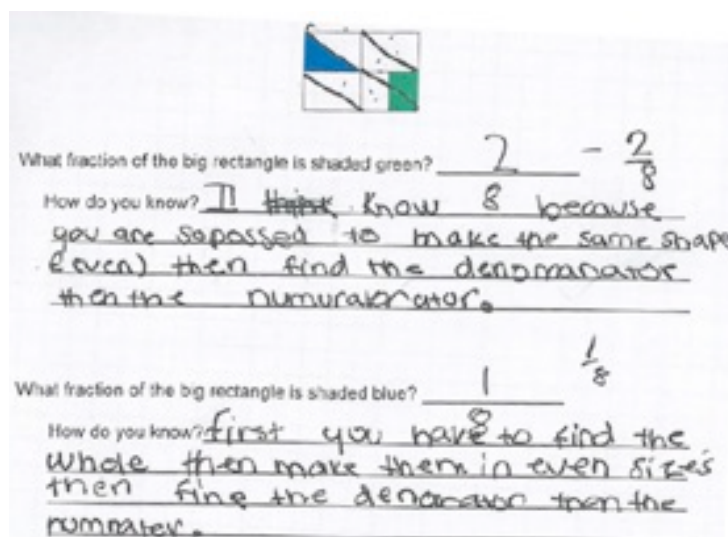 What fraction of the big rectangle is shaded green? 2/8 - 2/8
How do you know? I think know because
you are sopossed to make the same shape
(even) then find the denomanator
then the numuratorator.
What fraction of the big rectangle is shaded blue? 1/8 1/8
How do you know? first you have to find the
whole then make them in even sizes
then fine the denanator then the
numnater.